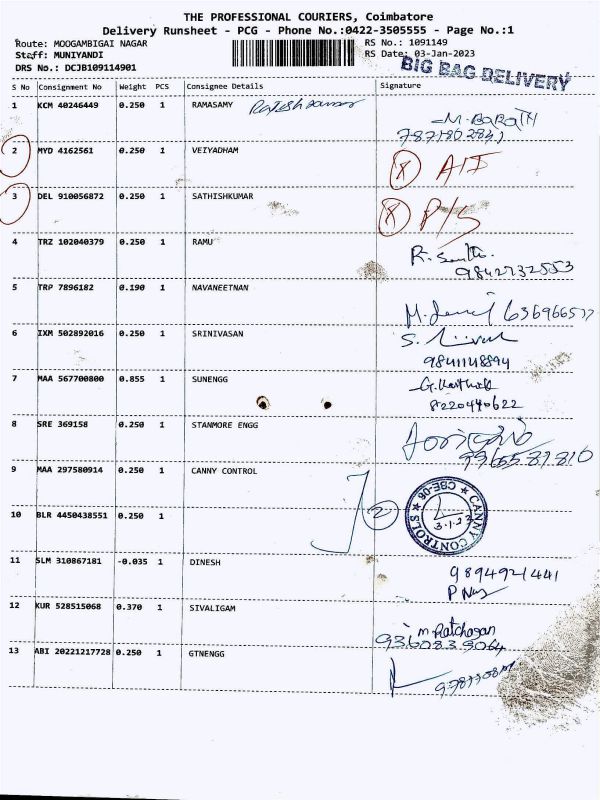 THE PROFESSIONAL COURIERS, Coimbatore
Delivery Runsheet - PCG - Phone No.:0422-3505555 - Page No.:1
Route: MOOGAMBIGAI NAGAR RS No.: 1091149
Staff: MUNIYANDI RS Date: 03-Jan-2023
DRS No.: DCJB109114901 BIG BAG DELIVERY
S No Consignment No Weight PCS Consignee Details Signature
1 KCM 40246449 0.250 1 RAMASAMY
M. BARATH
7871802841
2 MYD 4162561 0.250 1 VEIYADHAM
3 DEL 910056872 0.250 1 SATHISHKUMAR
P/S
4 TRZ 102040379 0.250 1 RAMU
9842732553
5 TRP 7896182 0.190 1 NAVANEETNAN
6 IXM 502892016 0.250 1 SRINIVASAN
9841148894
7 MAA 567700800 0.855 1 SUNENGG
G. Karthick
8220440622
8 SRE 369158 0.250 1 STANMORE ENGG
9 MAA 297580914 0.250 1 CANNY CONTROL
2
CANNY CONTROLS CBE-06
3.1.23
10 BLR 4450438551 0.250 1
11 SLM 310867181 -0.035 1 DINESH
9894921441
12 KUR 528515068 0.370 1 SIVALIGAM
9360839064
13 ABI 20221217728 0.250 1 GTNENGG